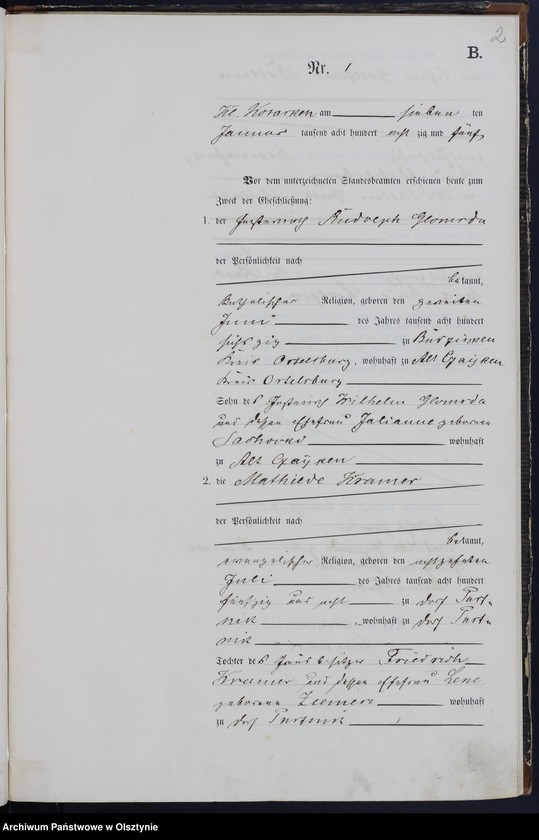 2
B.
Nr. 1
Kl. Kosarken am sieben ten
Januar tausend acht hundert acht zig und fünf
Vor dem unterzeichneten Standesbeamten erschienen heute zum
Zweck der Eheschließung:
1. der Rudolph Glomsda
der Persönlichkeit nach
bekannt,
katholischer Religion, geboren den zweiten
Juni des Jahres tausend acht hundert
sechszig zu
Kreis Ortelsburg, wohnhaft zu Alt Czaÿken
Kreis Ortelsburg
Sohn des Wilhelm Glomsda
und dessen Ehefrau Julianne geborenen
wohnhaft
zu Alt Czaÿken
2. die Mathilde Kramer
der Persönlichkeit nach
bekannt,
evangelischer Religion, geboren den achtzehnten
Juli des Jahres tausend acht hundert
fünfzig und acht zu Dorf
wohnhaft zu Dorf
Tochter des Friedrich
Kramer und dessen Ehefrau Lene
geborenen wohnhaft
zu Dorf
Archiwum Państwowe w Olsztynie